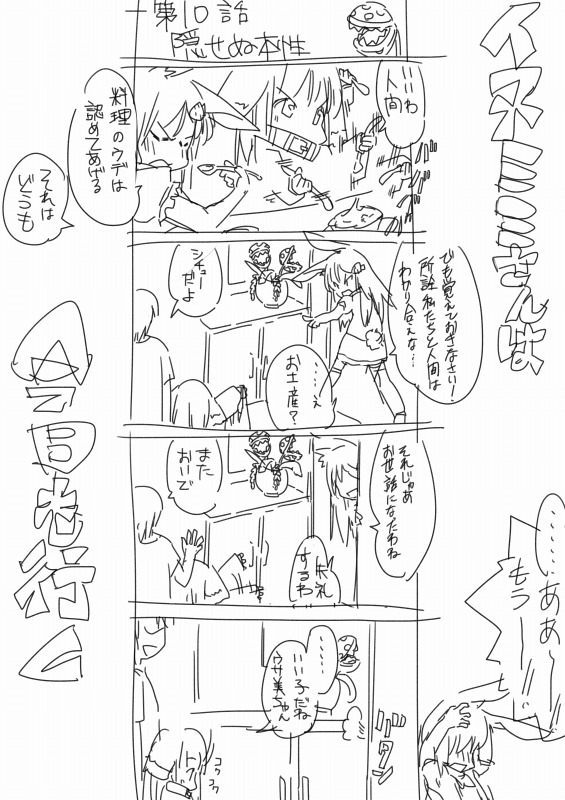 イヌミミさんは
今日も行く
第10話
隠せぬ本性
いいわ
人間
料理のウデは
認めてあげる
それは
どうも
ガツガツ
でも覚えておきなさい!
所詮私たちと人間は
わかり合えな…
シチュー
だよ
……え
お土産?
それじゃあ
お世話になたわね
また
おいで
失礼
するわ
バタン
……
いい子だね
ウサ美ちゃん
コクコク
……ああ~
もう―